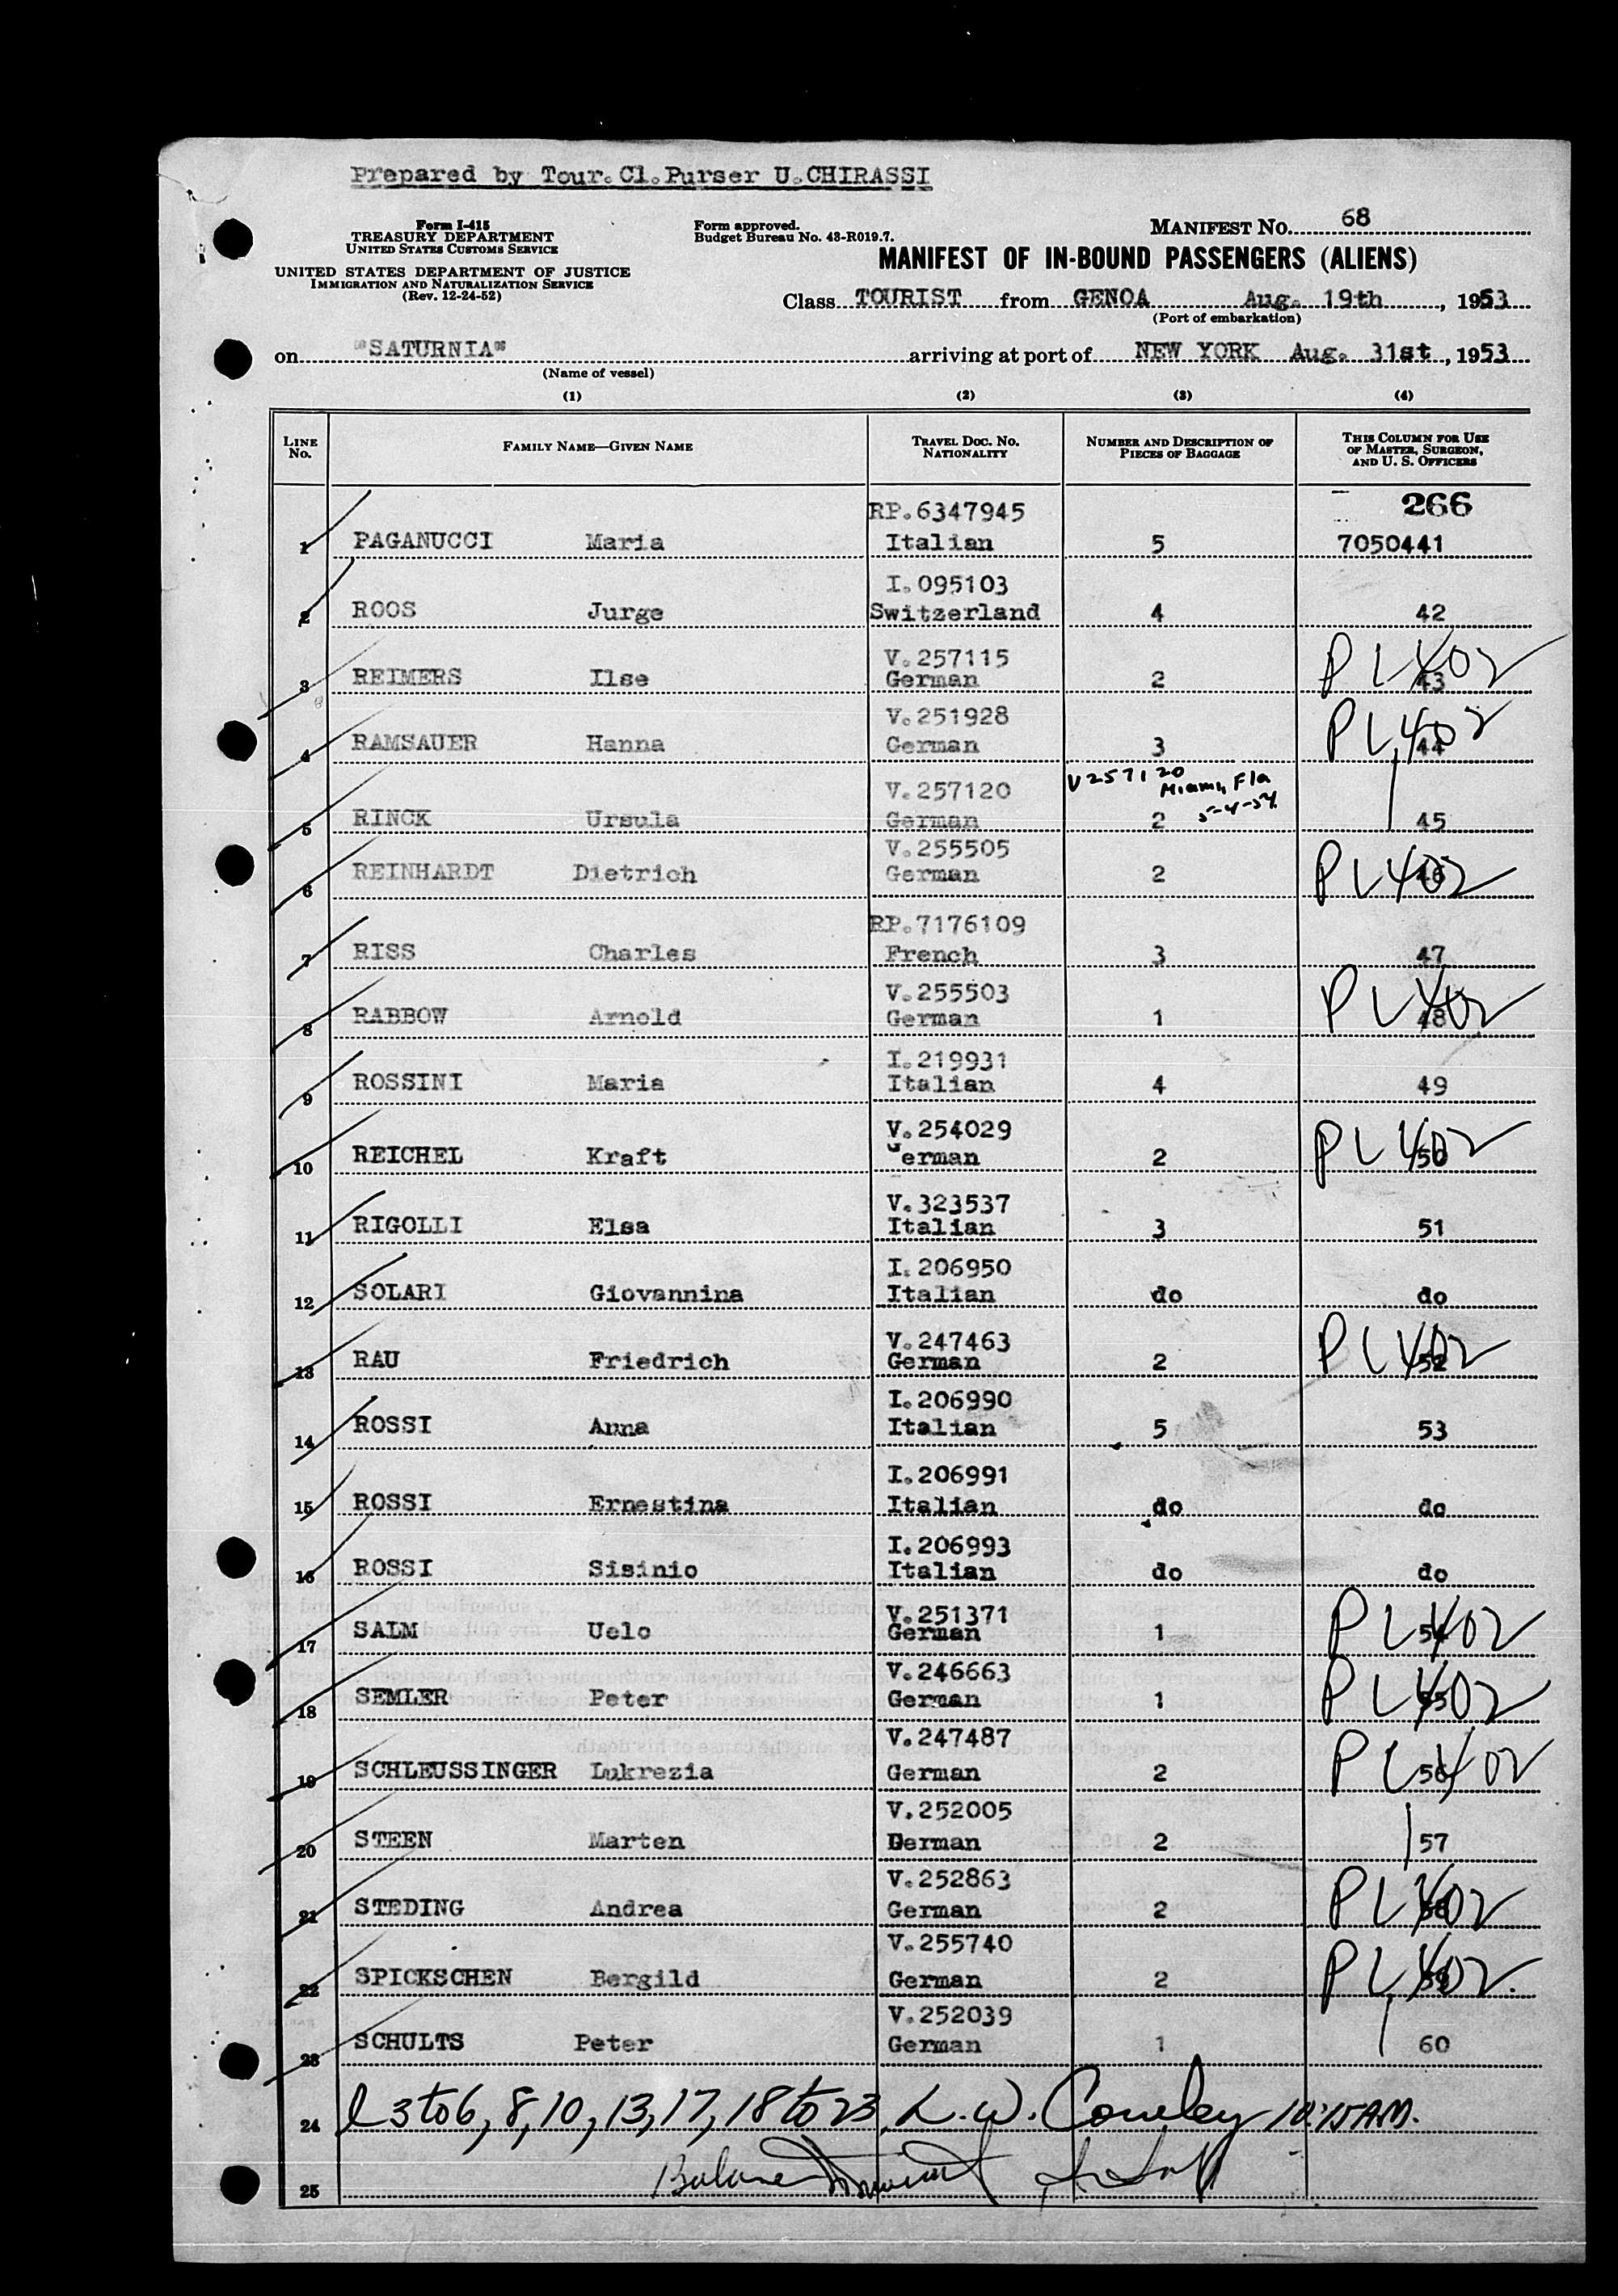 Prepared by Tour. Cl. Purser U. CHIRASSI
Form I-415
TREASURY DEPARTMENT
UNITED STATES CUSTOMS SERVICE
UNITED STATES DEPARTMENT OF JUSTICE
IMMIGRATION AND NATURALIZATION SERVICE
(Rev. 12-24-52)
Form approved.
Budget Bureau No. 43-R019.7.
MANIFEST NO. 68
MANIFEST OF IN-BOUND PASSENGERS (ALIENS)
Class TOURIST from GENOA Aug. 19th, 1953
(Port of embarkation)
on "SATURNIA" arriving at port of NEW YORK Aug. 31st, 1953
(Name of vessel)
(1) (2) (3) (4)
LINE NO. FAMILY NAME—GIVEN NAME TRAVEL DOC. NO. NATIONALITY NUMBER AND DESCRIPTION OF PIECES OF BAGGAGE THIS COLUMN FOR USE OF MASTER, SURGEON, AND U. S. OFFICERS
RP.6347945 266
1 PAGANUCCI Maria Italian 5 7050441
I.095103
2 ROOS Jurge Switzerland 4 42
V.257115 PL 402
3 REIMERS Ilse German 2 43
V.251928 PL 402
4 RAMSAUER Hanna German 3 44
V.257120 V257120 Miami, Fla
5-4-54
5 RINCK Ursula German 2 45
V.255505
6 REINHARDT Dietrich German 2 46 PL 402
RP.7176109
7 RISS Charles French 3 47
V.255503 PL 402
8 RABBOW Arnold German 1 48
I.219931
9 ROSSINI Maria Italian 4 49
V.254029 PL 402
10 REICHEL Kraft German 2 50
V.323537
11 RIGOLLI Elsa Italian 3 51
I.206950
12 SOLARI Giovannina Italian do do
V.247463 PL 402
13 RAU Friedrich German 2 52
I.206990
14 ROSSI Anna Italian 5 53
I.206991
15 ROSSI Ernestina Italian do do
I.206993
16 ROSSI Sisinio Italian do do
V.251371 PL 402
17 SALM Uelo German 1 54
V.246663 PL 402
18 SEMLER Peter German 1 55
V.247487 PL 402
19 SCHLEUSSINGER Lukrezia German 2 56
V.252005
20 STEEN Marten German 2 57
V.252863 PL 402
21 STEDING Andrea German 2 58
V.255740 PL 402
22 SPICKSCHEN Bergild German 2 59
V.252039
23 SCHULTS Peter German 1 60
24 l 3 to 6, 8, 10, 13, 17, 18 to 23 L. W. Cowley 10:15 A.M.
25 Balance